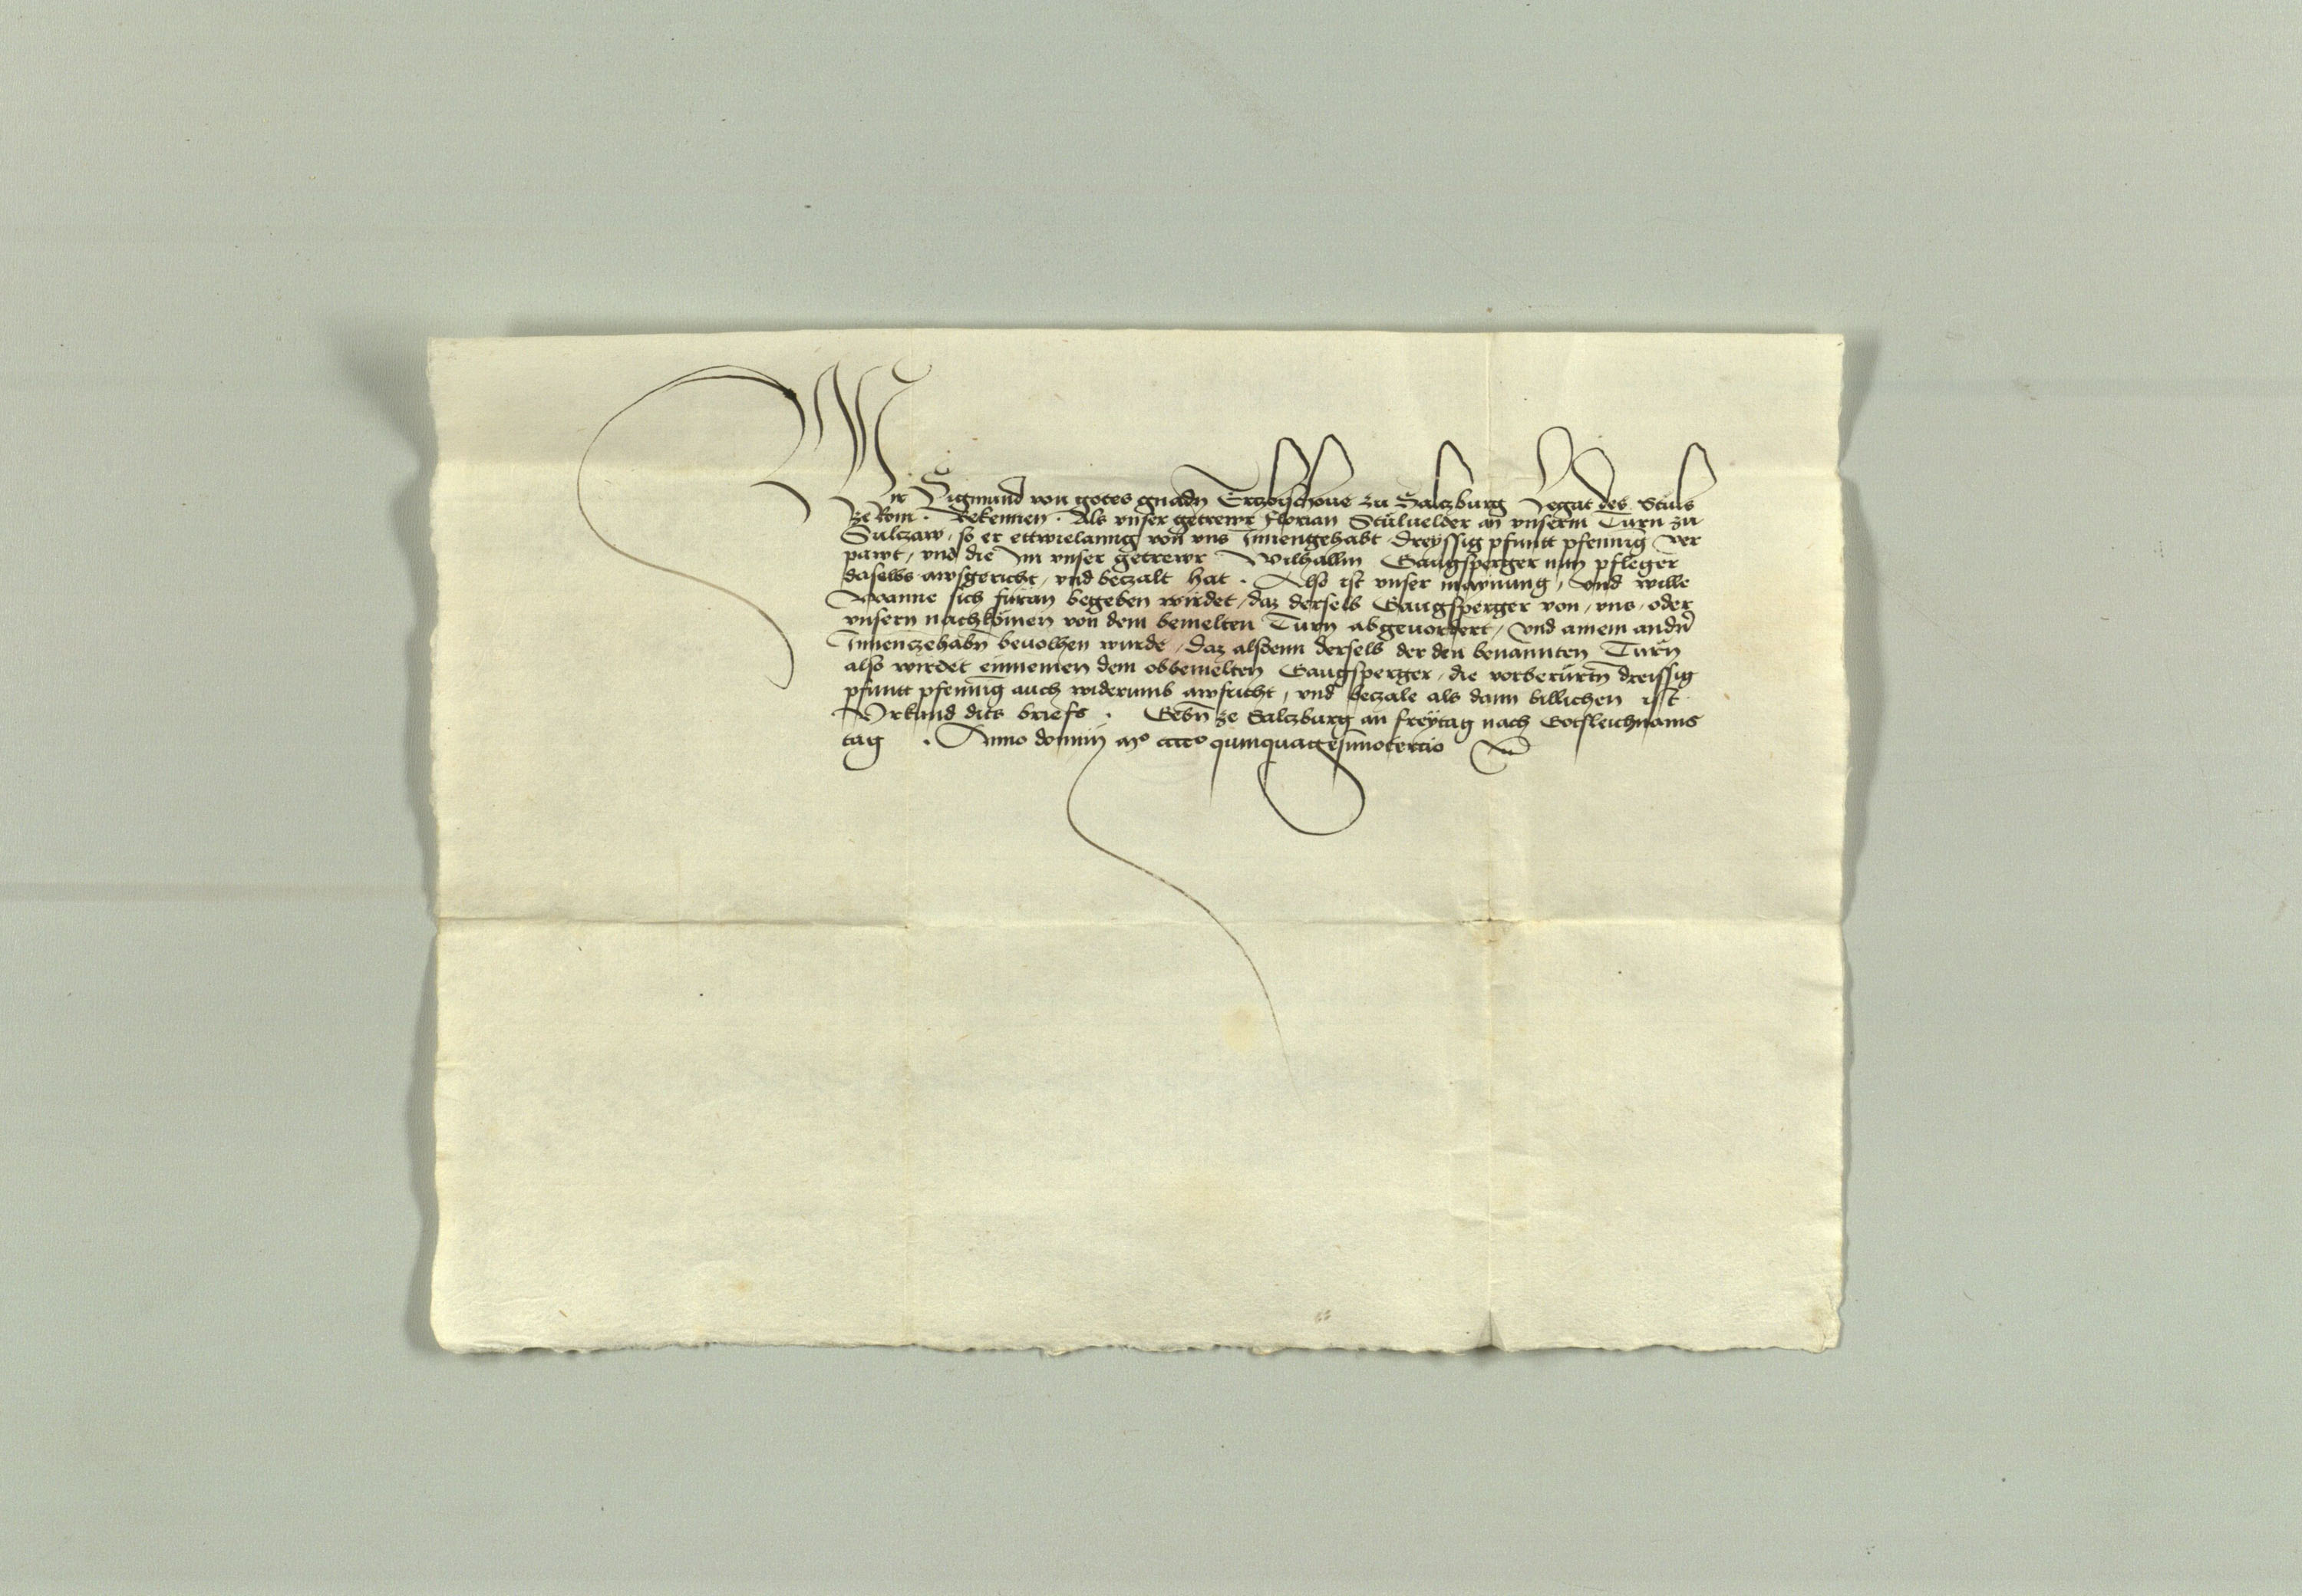 Wir Sigmund von gotes gnadn Ertzbischoue zu Salczburg Legat des Stuls
ze Rom . Bekennen . Als vnser getrewr Florian Stuluelder an vnserm Turn zu
Sulczaw / so er ettwielanng von vns Innengehabt dreyssig pfuntt pfennig ver
pawt / vnd die Im vnser getrewr Wilhallm Gaugsperger nun pfleger
daselbs awsgericht / vnd beczalt hat . Also ist vnser maynung / vnd wille
Wanne sich füran begeben wirdet / daz derselb Gaugsperger von / vns / oder
vnsern nachkömen von dem bemelten Turn abgeuordert / vnd ainem andn̄
Innenczehabn̄ beuolhen wurde / daz alsdenn derselb der den benannten Turn
also wirdet einnemen dem obbemelten Gaugsperger / die vorberürtn̄ dreissig
pfuntt pfennīg auch widerumb awsricht / vnd beczale als dann billichen ist
Vrkund dits briefs . Gebn̄ ze Salczburg an freytag nach Gotsleichnams
tag . Anno domini mo cccco quinquagesimotercio